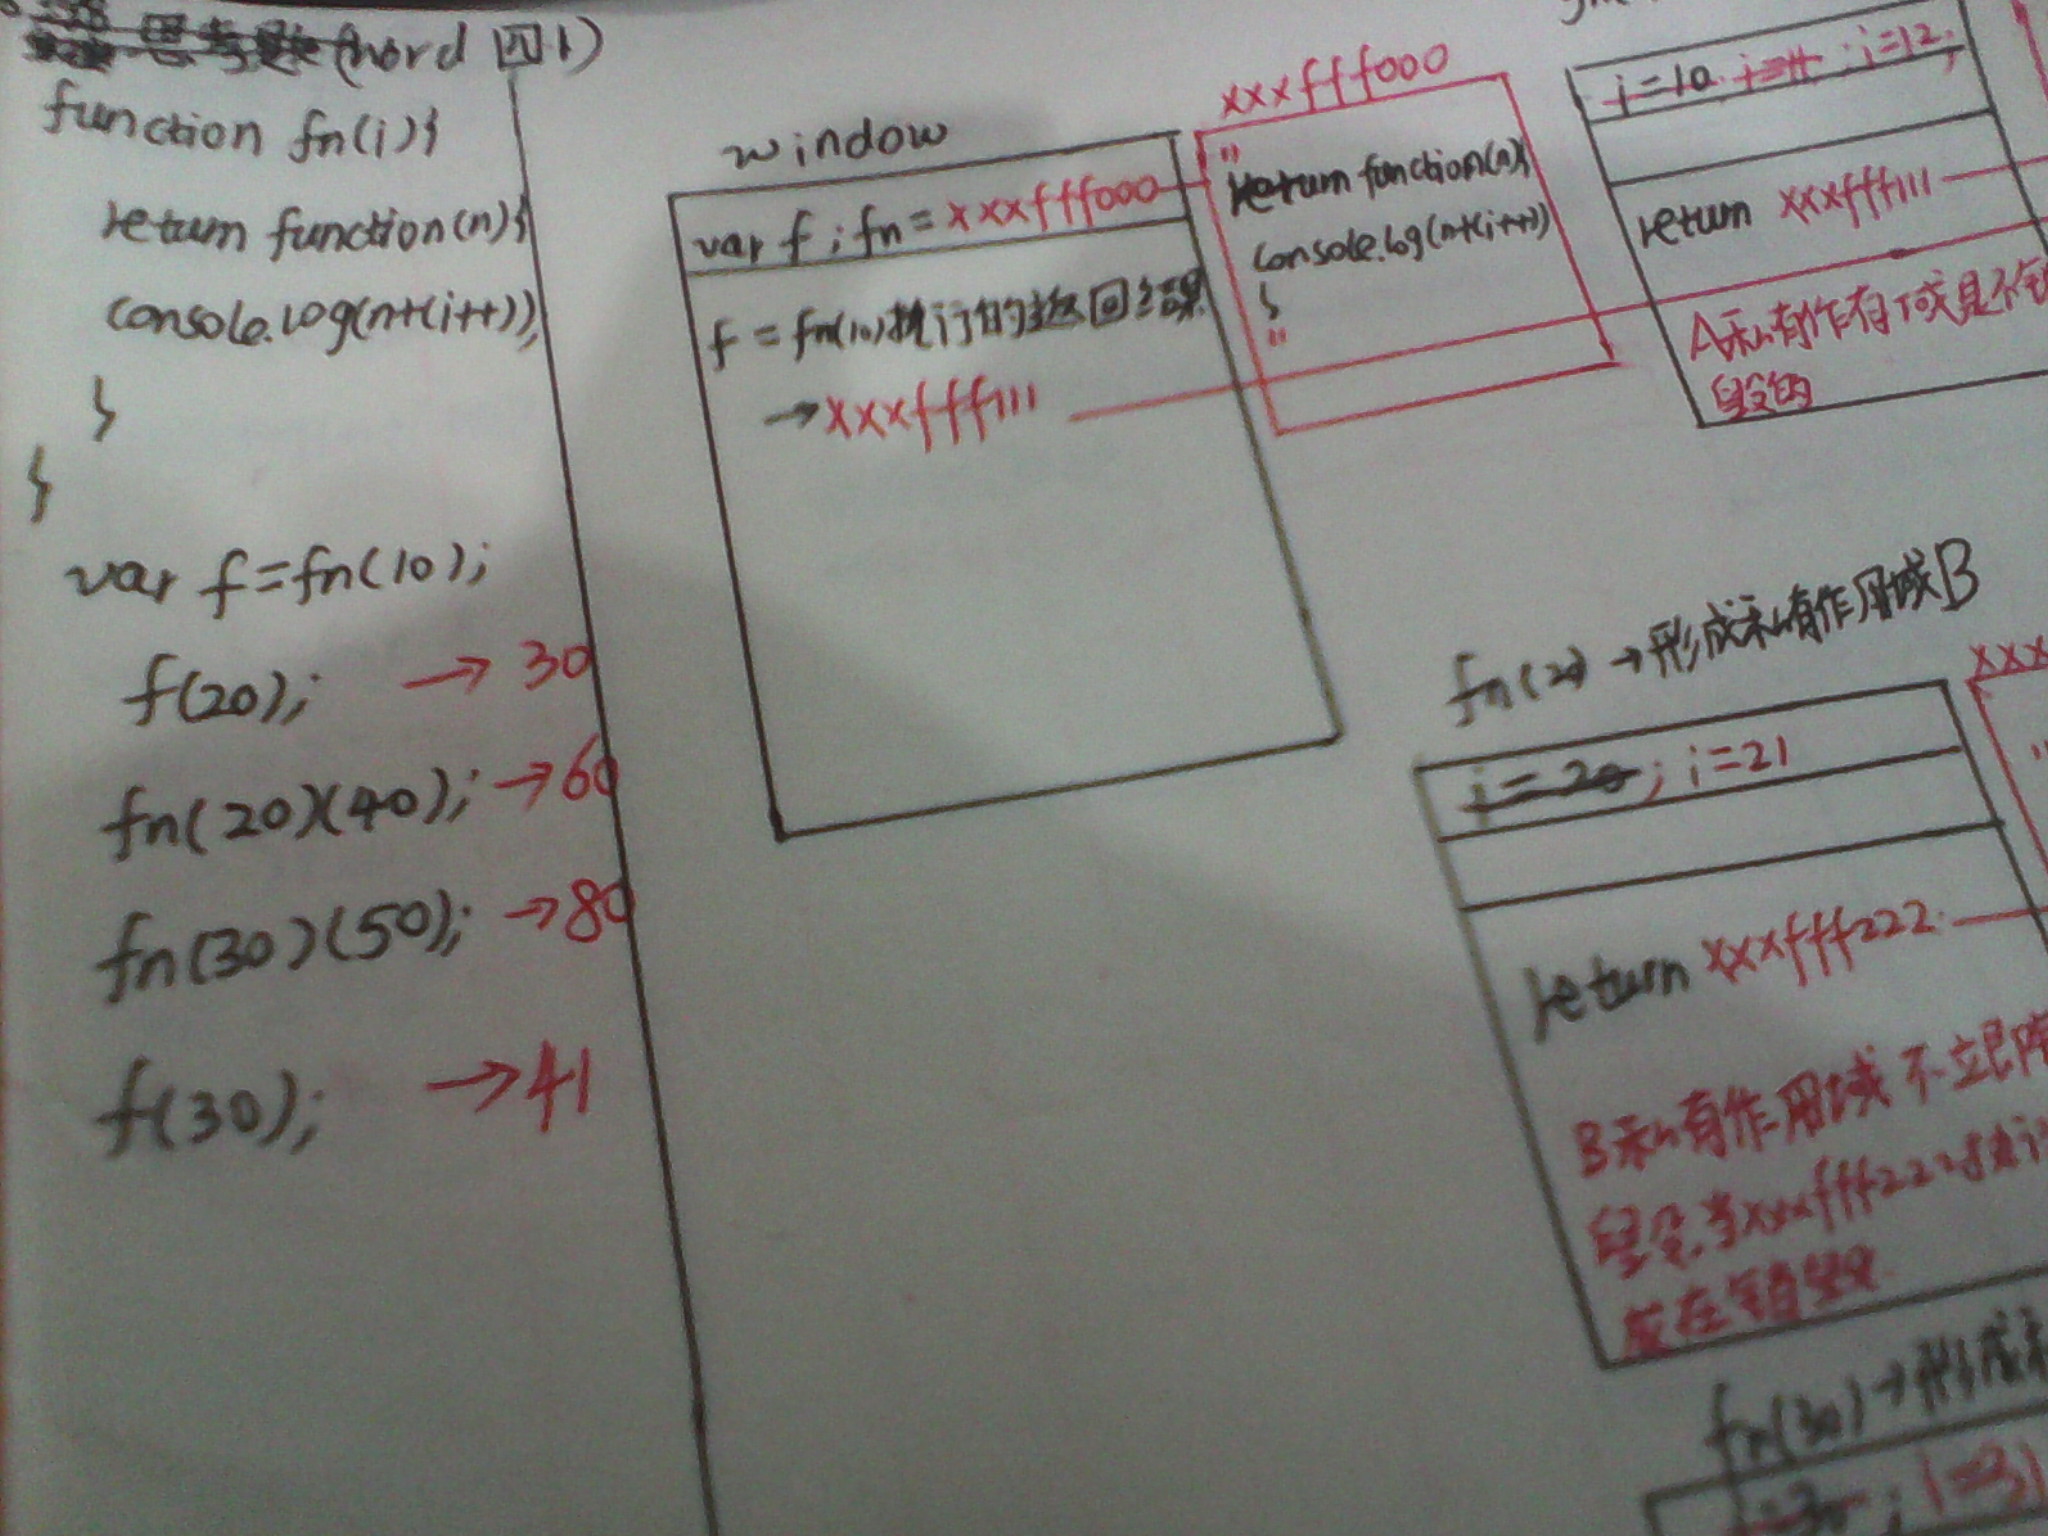 思考题(word 四1)
function fn(i){
return function(n){
console.log(n+(i++));
}
}
var f=fn(10);
f(20); → 30
fn(20)(40); →60
fn(30)(50); →80
f(30); →41
window
var f ; fn = xxxfff000
f = fn(10)执行的返回结果
→xxxfff111
xxxfff000
"
return function(n){
console.log(n+(i++))
}
"
i=10 i=11 ; i=12;
return xxxfff111
A私有作用域是不销
毁的
fn(20) →形成私有作用域B
xxx
i=20; i=21
return xxxfff222
B私有作用域 不立即
毁 当xxxfff222
在销毁
fn(30)→形成
i=30; i=31